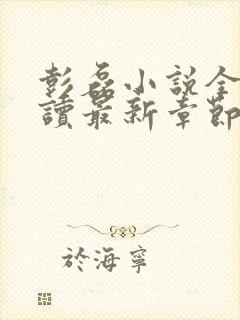 彭磊小説全
讀最新章節
於海寧